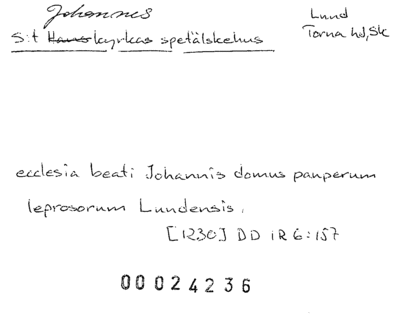 Johannes
S:t Hans kyrkas spetälskehus
Lund
Torna hd, Sk
ecclesia beati Johannis domus pauperum
leprosorum Lundensis.
[1230] DD 1R 6:157
00024236